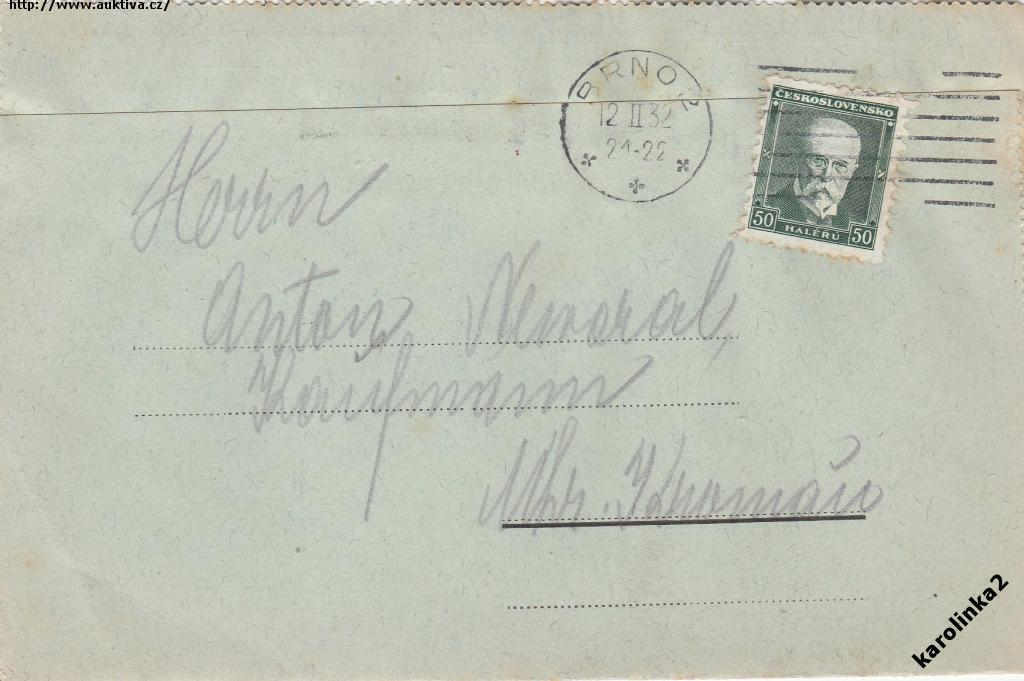 http://www.auktiva.cz/
BRNO 2
12 II 32
21-22
ČESKOSLOVENSKO
50 HALÉRU 50
Herrn
Anton Nevoral,
Kaufmann
Mhr. Kromau
karolinka2